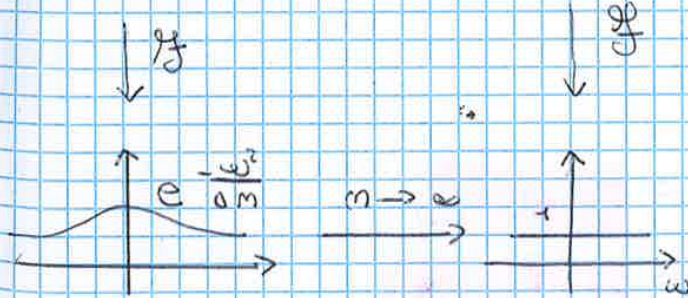 ℱ ℱ
e^{-ω²/4n} n → ∞ 1
ω